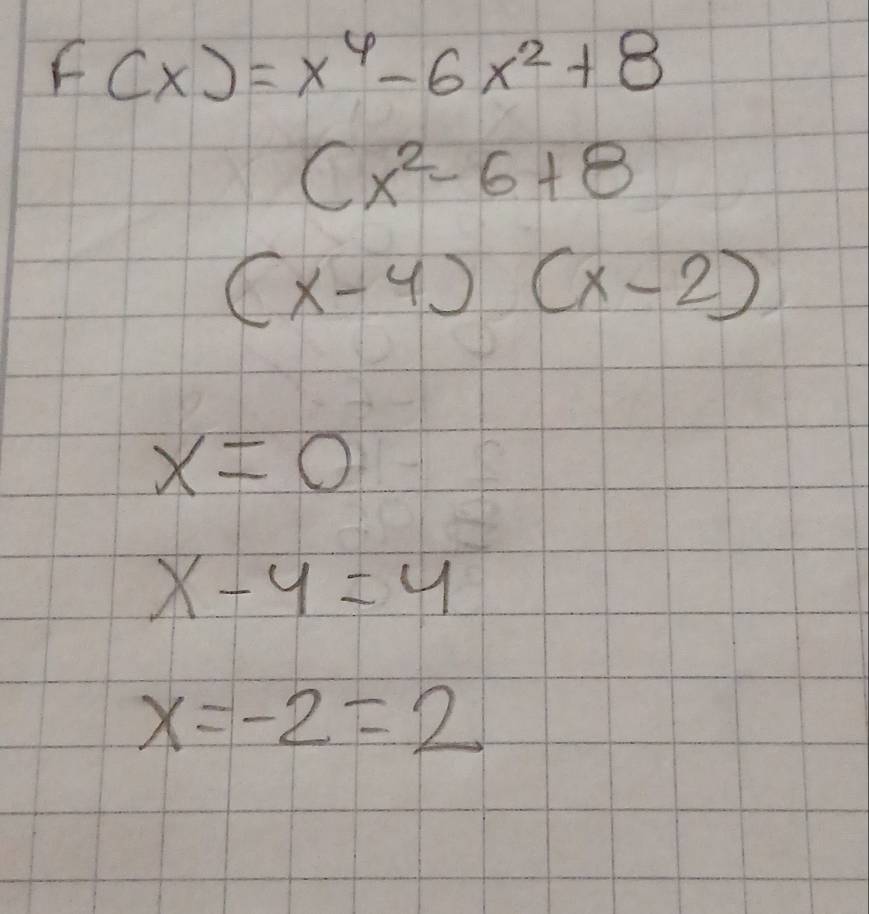 F(x)=x⁴-6x²+8
(x²-6+8
(x-4) (x-2)
x=0
x-4=4
x=-2=2